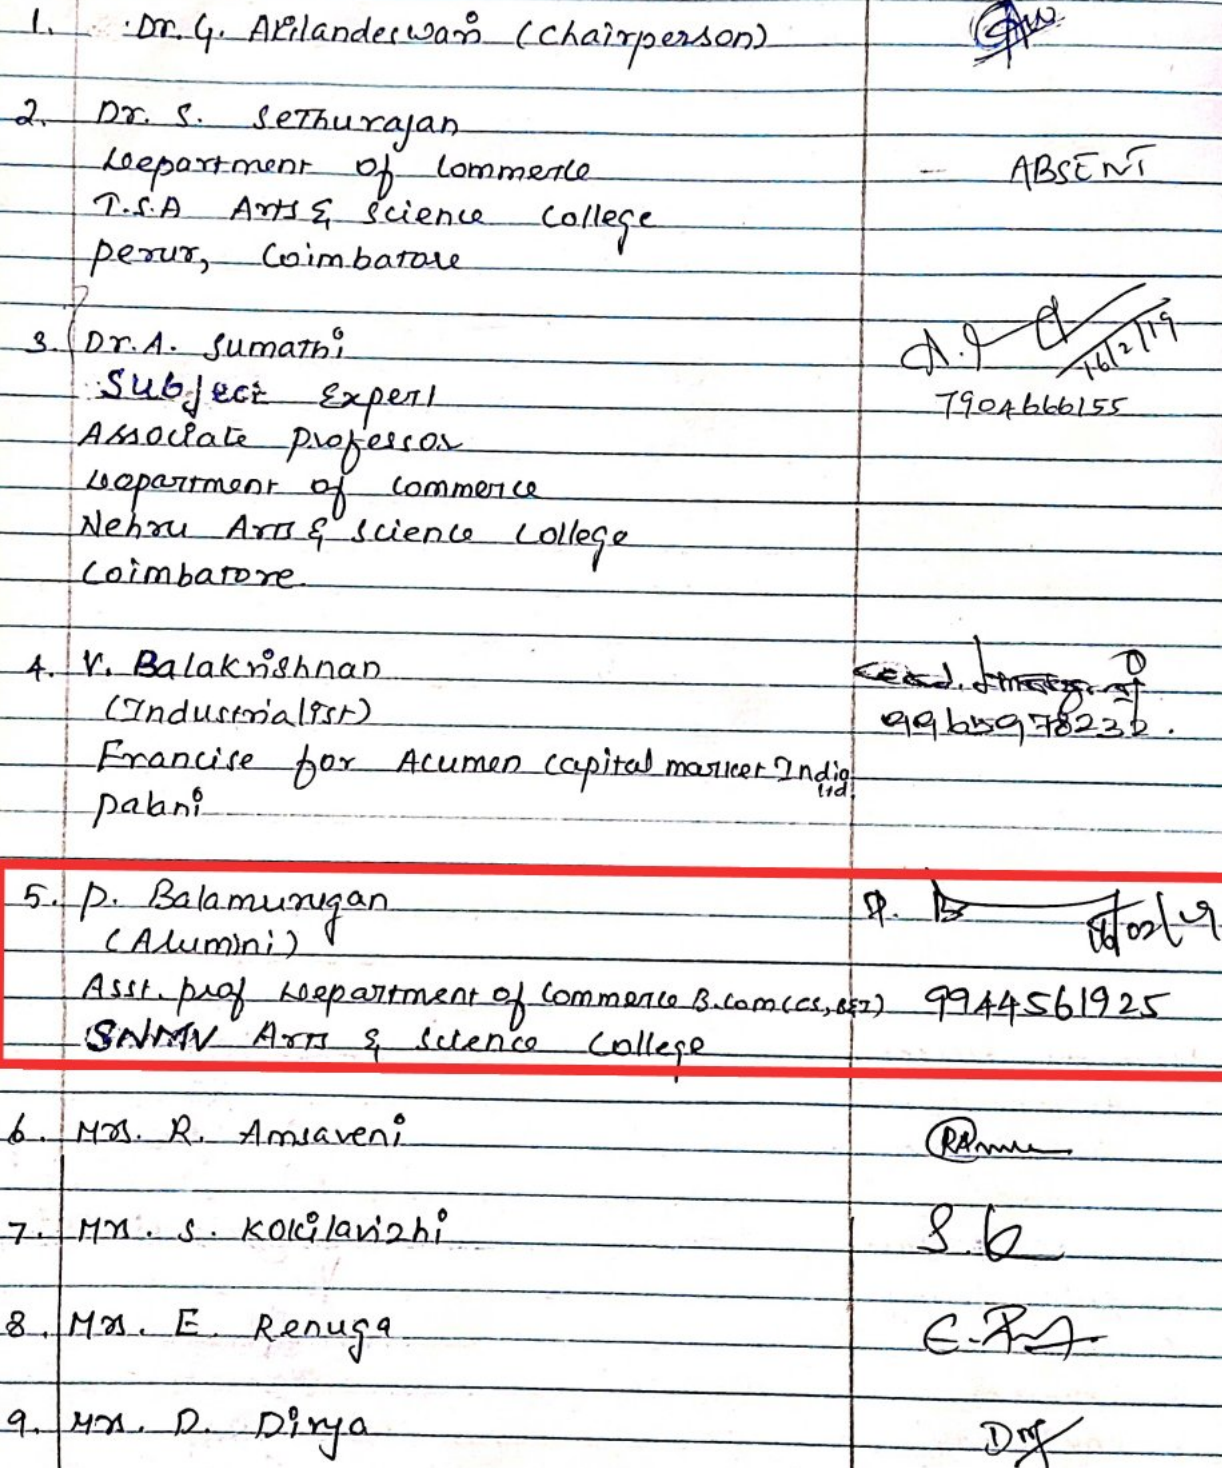 1. Dr. G. Akilandeswari (Chairperson)
2. Dr. S. Sethurajan
Department of Commerce - ABSENT
T.S.A Arts & Science College
Perur, Coimbatore
3. Dr. A. Sumathi 16/2/19
Subject Expert 7904666155
Associate Professor
Department of Commerce
Nehru Arts & Science College
Coimbatore.
4. V. Balakrishnan
(Industrialist)
Francise for Acumen Capital market India
ltd
Palani
5. P. Balamurugan P. B
(Alumini)
Asst. Prof Department of Commerce B.Com(CS, B&I) 9944561925
SNMV Arts & Science College
6. Mrs. R. Amsaveni
7. Mrs. S. Kokilavizhi S. K
8. Mrs. E. Renuga
9. Mrs. D. Divya